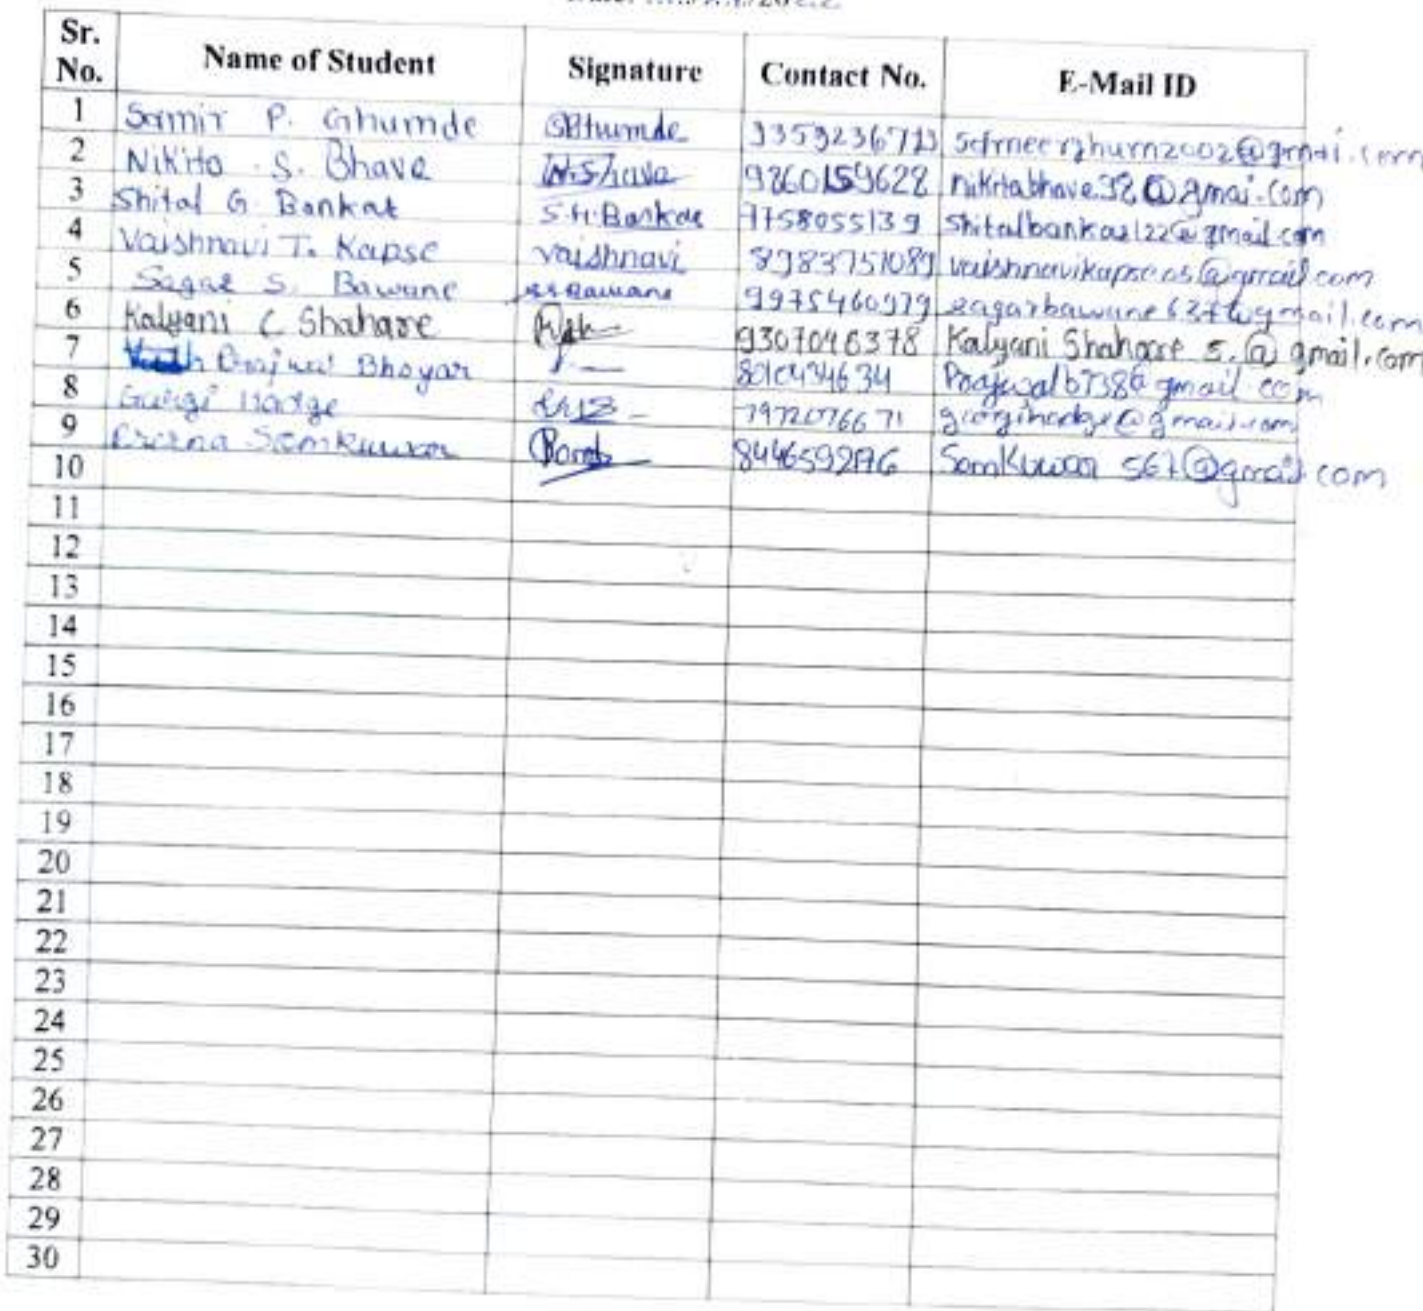 Sr. No. Name of Student Signature Contact No. E-Mail ID
1 Samir P. Ghumde 9359236713
2 Nikita S. Bhave 9860159628 nikitabhave38@gmai.com
3 Shital G. Bankat S.G.Bankar 7758055139 Shitalbankar122@gmail.com
4 Vaishnavi T. Kapse Vaishnavi 8983751089 vaishnavikapse05@gmail.com
5 Sagar S. Bawane S.S.Bawane 9975460979
6 Kalyani C Shahare 9307046378 Kalyani Shahare 5.@gmail.com
7 Prajwal Bhoyar Prajwalb738@gmail.com
8 Gargi Hadge 7972076671 gargihadge@gmail.com
9 Prerna Somkuwar Somkuwar 567@gmail.com
10
11
12
13
14
15
16
17
18
19
20
21
22
23
24
25
26
27
28
29
30